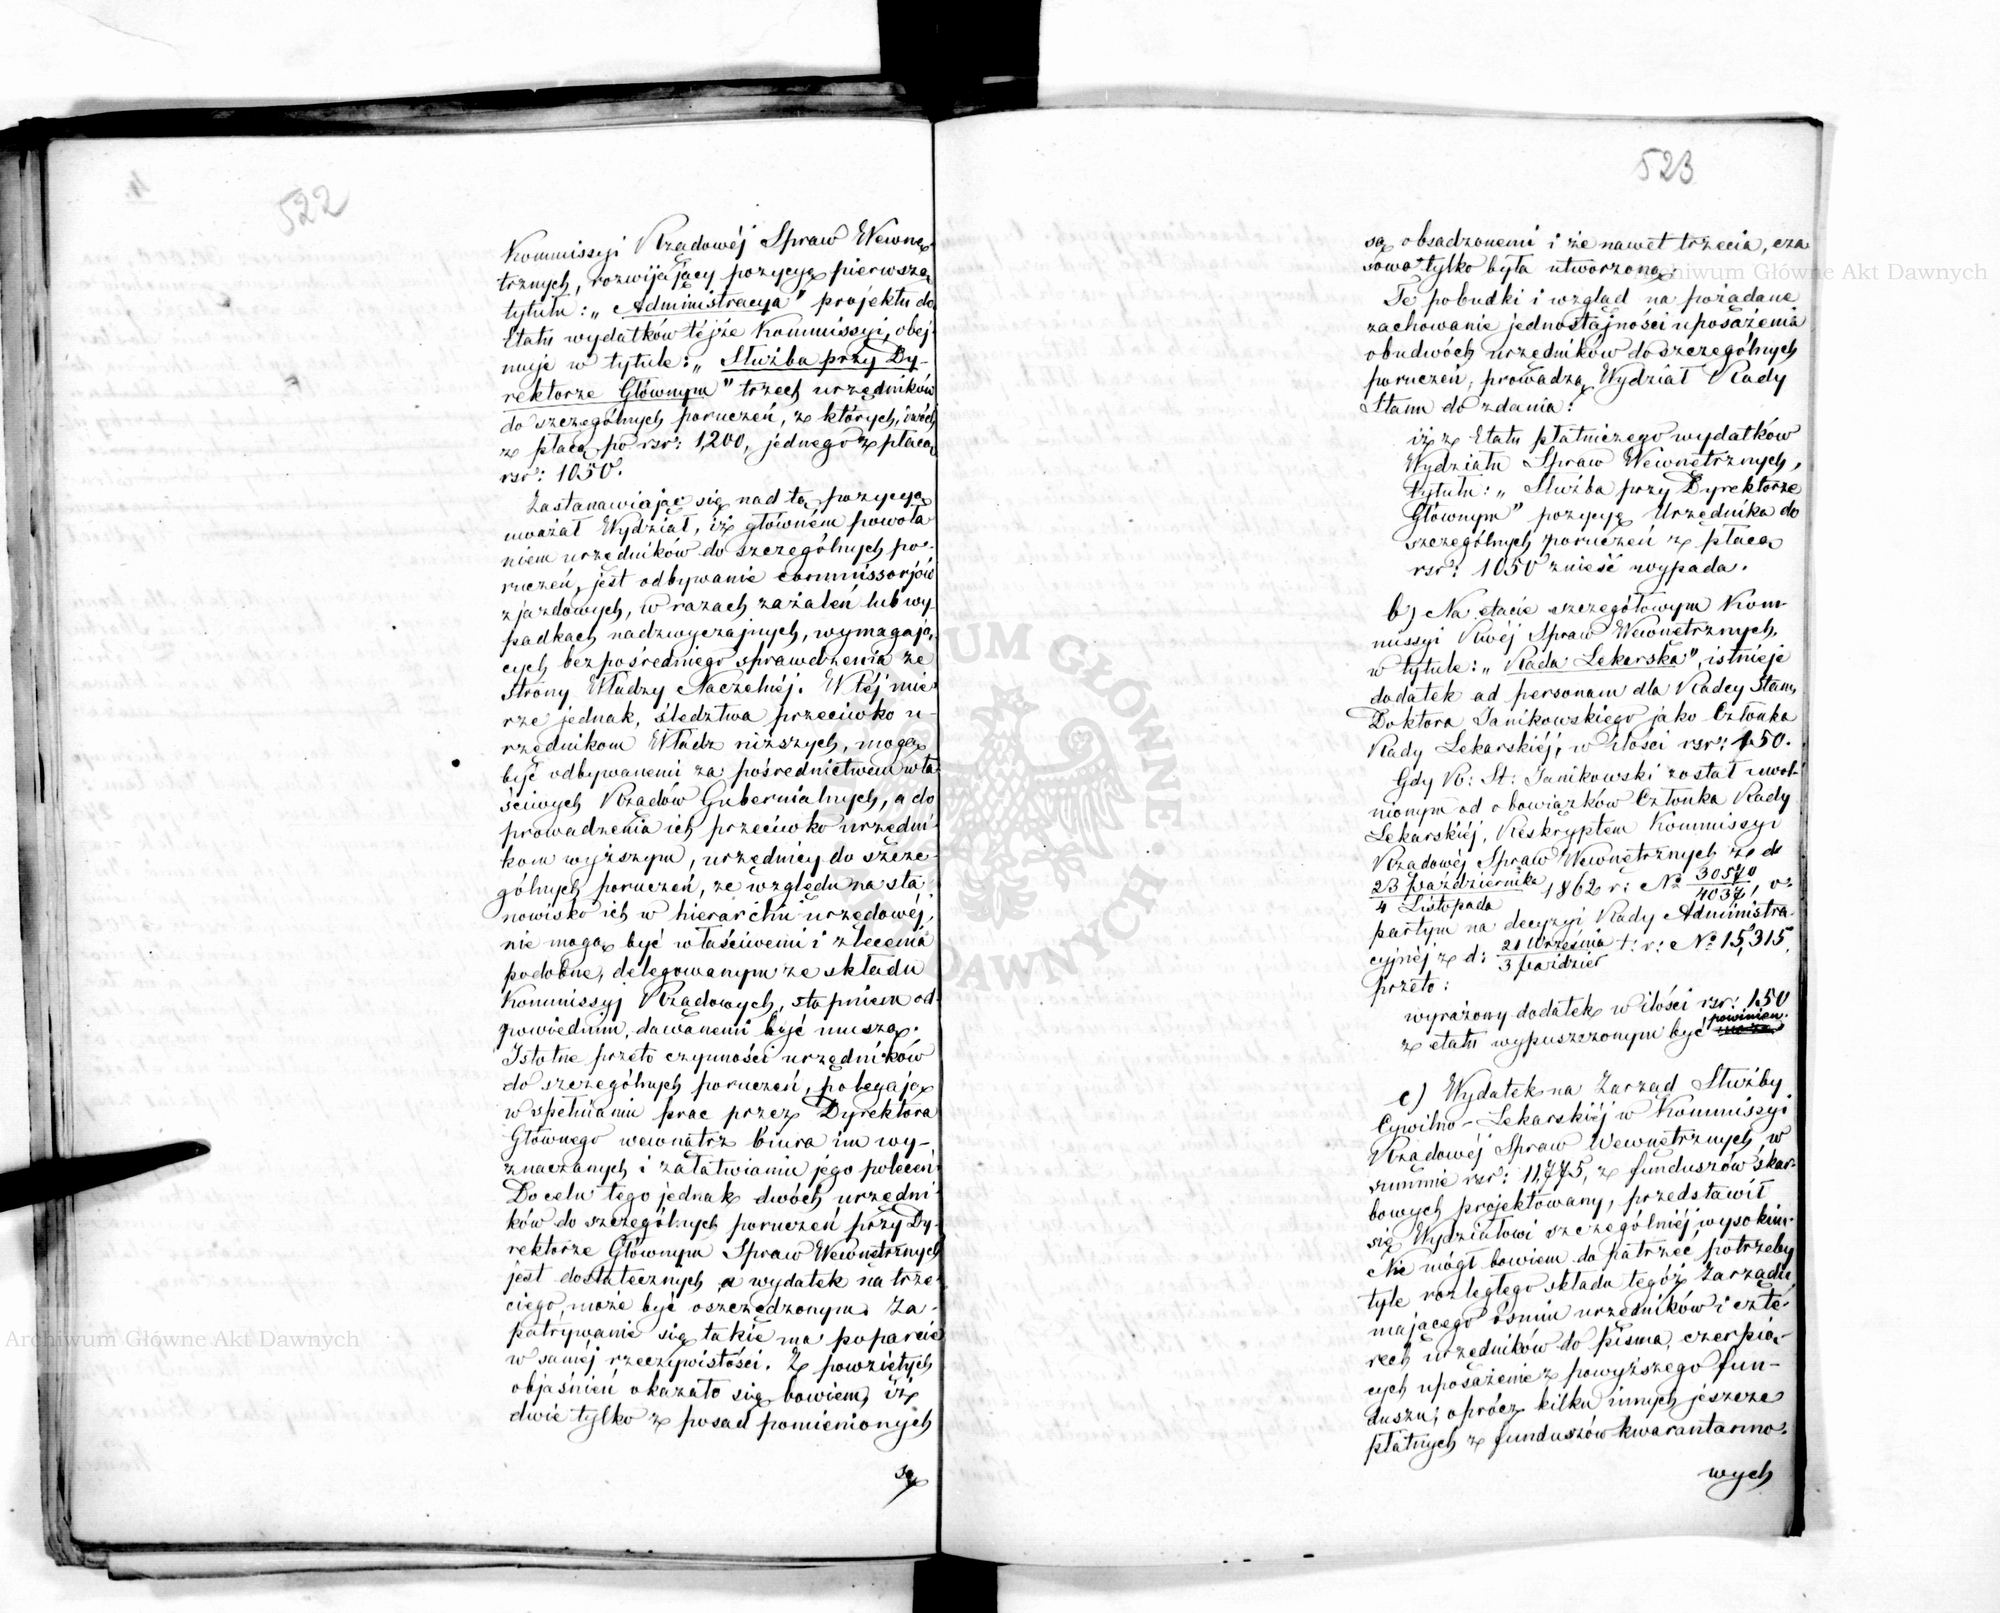 522
Kommissyi Rządowéj Spraw Wewnę
trznych, rozwijający pozycyę pierwszą
tytułu: „Administracya" projektu do
Etatu wydatków téjże Kommissyi, obej-
muje w tytule: „Służba przy Dy-
rektorze Głównym" trzech urzędników
do szczególnych poruczeń, z których, dwóch
z płacą po rsr: 1,200, jednego z płacą
rsr: 1050.
Zastanawiając się nad tą pozycyą
uważał Wydział, iż główném powoła
niem urzędników do szczególnych po-
ruczeń, jest odbywanie commissorjów
zjazdowych, w razach zażaleń lub wy-
padkach nadzwyczajnych, wymagają-
cych bezpośredniego sprawdzenia ze
strony Władzy Naczelnéj. W téj mie-
rze jednak, śledztwa przeciwko u-
rzędnikom Władz niższych, mogą
być odbywanemi za pośrednictwem wła
ściwych Rządów Gubernialnych, a do
prowadzenia ich przeciwko urzędni-
kom wyższym, urzędnicy do szcze-
gólnych poruczeń, ze względu na sta
nowisko ich w hierarchii urzędowéj,
nie mogą być właściwemi i zlecenia
podobne, delegowanym ze składu
Kommissyj Rządowych, stopniem od-
powiednim, dawanemi być muszą.
Istotne przeto czynności urzędników
do szczególnych poruczeń, polegają
w spełnianiu prac przez Dyrektora
Głównego wewnątrz biura im wy-
znaczanych i załatwianiu jego poleceń
Do celu tego jednak dwóch urzędni-
ków do szczególnych poruczeń przy Dy-
rektorze Głównym Spraw Wewnętrznych
jest dostatecznych a wydatek na trze-
ciego, może być oszczędzonym. Za-
patrywanie się takie ma poparcie
w saméj rzeczywistości. Z powziętych
objaśnień okazało się bowiem, iż
dwie tylko z posad pomienionych
są
523
są obsadzonemi i że nawet trzecia, cza
sowo tylko była utworzoną.
Te pobudki i wzgląd na pożądane
zachowanie jednostajności uposażenia
obudwóch urzędników do szczególnych
poruczeń, prowadzą Wydział Rady
Stanu do zdania:
iż z Etatu płatniczego wydatków
Wydziału Spraw Wewnętrznych,
tytułu: „Służba przy Dyrektorze
Głównym" pozycyę Urzędnika do
szczególnych poruczeń z płacą
rsr: 1050 znieść wypada.
b) Na etacie szczegółowym Kom-
missyi Rwéj Spraw Wewnętrznych,
w tytule: „Rada Lekarska", istnieje
dodatek ad personam dla Radcy Stanu
Doktora Janikowskiego jako Członka
Rady Lekarskiéj, w ilości rsr: 150.
Gdy R: St: Janikowski został uwol-
nionym od obowiązków Członka Rady
Lekarskiéj, Reskryptem Kommissyi
Rządowéj Spraw Wewnętrznych z d
23 Października / 4 Listopada 1862 r: No 30570 / 4037, o-
partym na decyzyi Rady Administra-
cyjnéj z d: 21 Września / 3 Paździer t: r: No 15,315,
przeto:
wyrażony dodatek w ilości rsr: 150
z etatu wypuszczonym być powinien.
c) Wydatek na Zarząd Służby
Cywilno-Lekarskiéj w Kommissyi
Rządowéj Spraw Wewnętrznych, w
summie rsr: 11,775, z funduszów skar-
bowych projektowany, przedstawił
się Wydziałowi szczególniéj wysokim.
Nie mógł bowiem dopatrzeć potrzeby
tyle rozległego składu tegóż Zarządu,
mającego ósmiu urzędników i czte-
rech urzędników do pisma, czerpią-
cych uposażenie z powyższego fun-
duszu, oprócz kilku innych jeszcze
płatnych z funduszów kwarantanno-
wych
Archiwum Główne Akt Dawnych
Archiwum Główne Akt Dawnych
ARCHIWUM GŁÓWNE AKT DAWNYCH